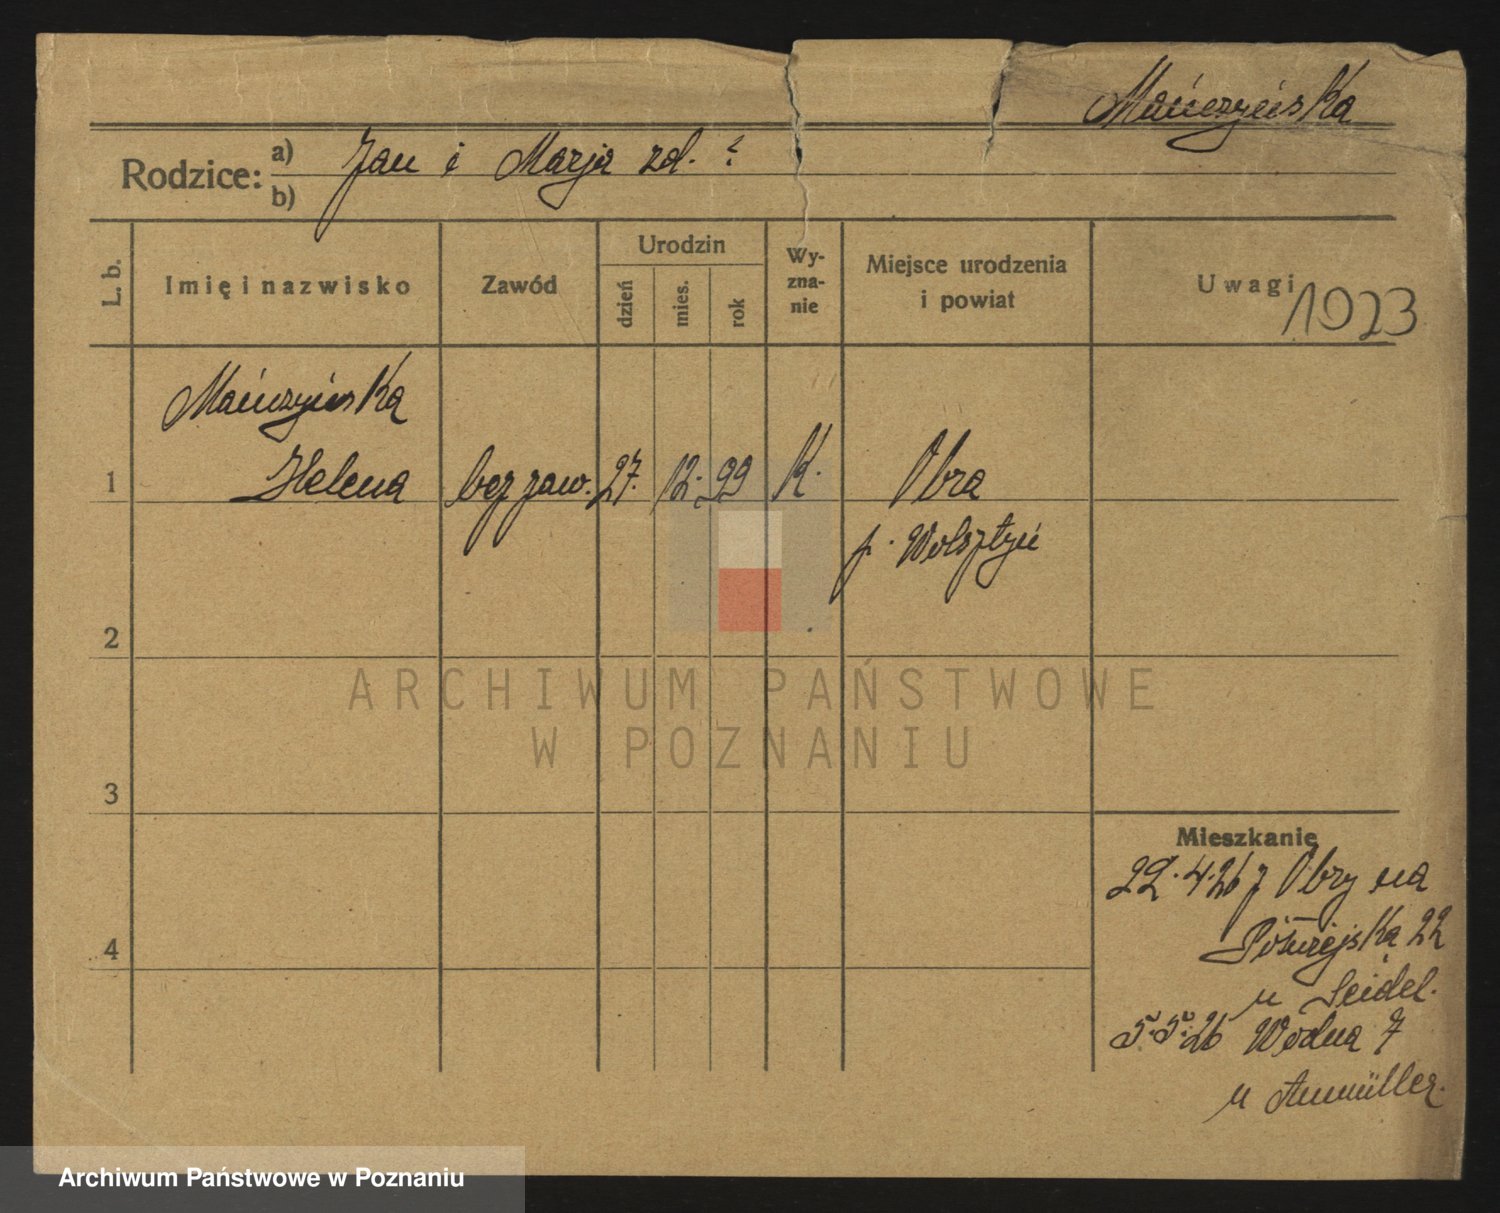 Mańczyńska
Rodzice: a) Jan i Marja zd. ?
b)
L. b.
Imię i nazwisko
Zawód
Urodzin
dzień
mies.
rok
Wy-
zna-
nie
Miejsce urodzenia
i powiat
Uwagi
1923
Mańczyńska
1 Helena bez zaw. 27. 12. 99 K. Obra
p. Wolsztyń
2
ARCHIWUM PAŃSTWOWE
W POZNANIU
3
Mieszkanie
22. 4. 26 z Obry na
22
4
u Seidel.
5. 5. 26 Wodna 7
u Aumüller.
Archiwum Państwowe w Poznaniu